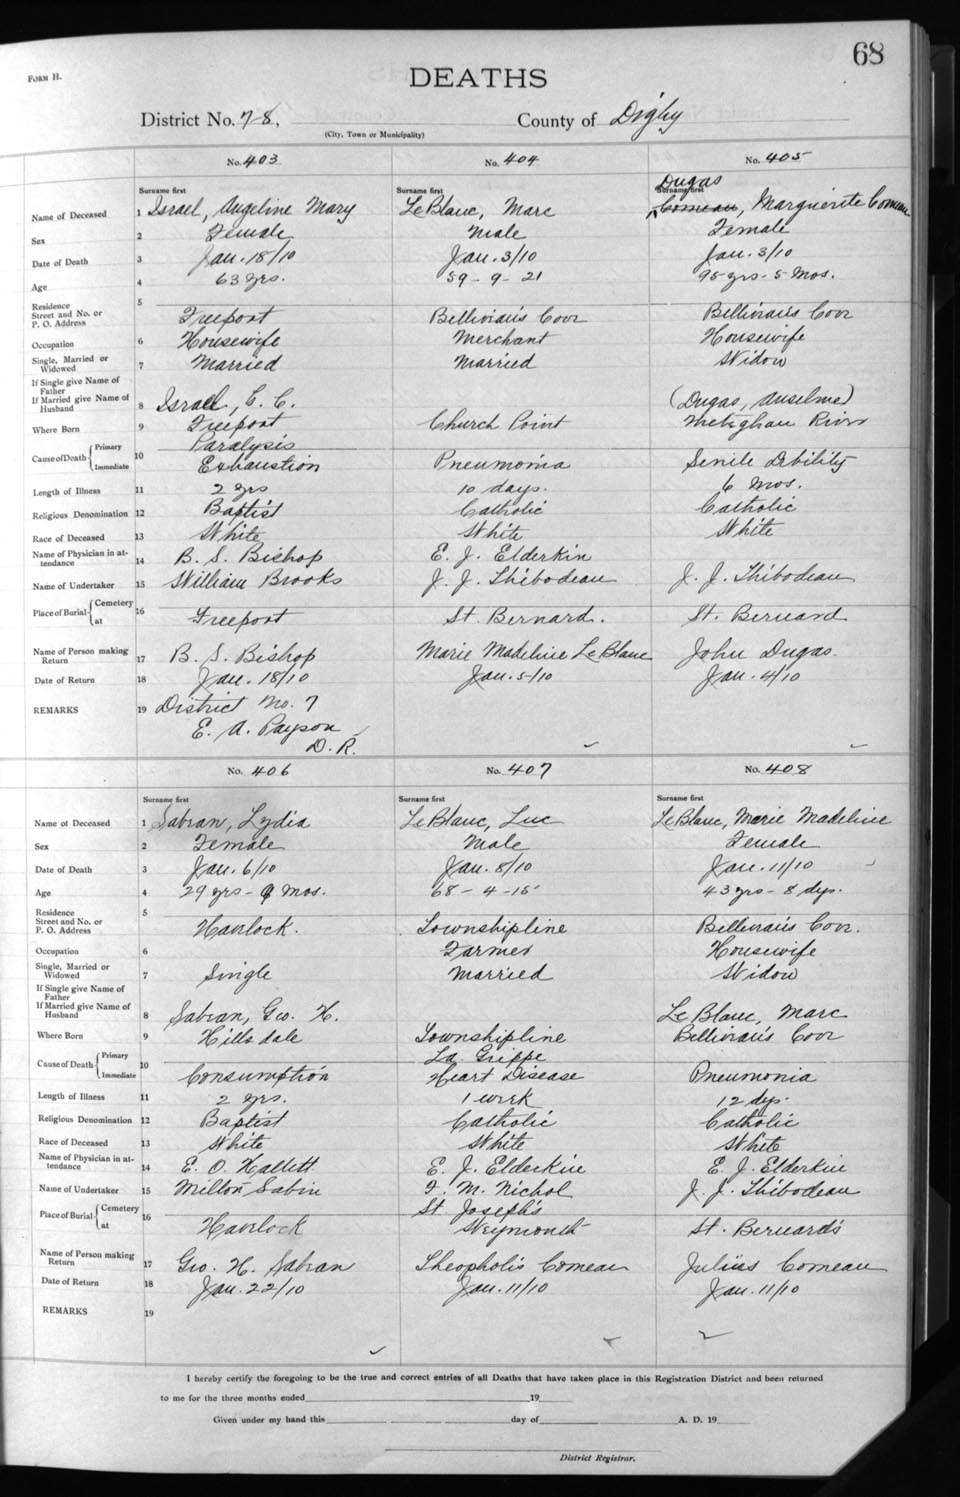 68
Form H.
DEATHS
District No. 7-8, County of Digby
(City, Town or Municipality)
No. 403 No. 404 No. 405
Surname first Surname first Surname first
Dugas
Name of Deceased 1 Israel, Angeline Mary LeBlanc, Marc Comeau, Marguerite Comeau
Sex 2 Female Male Female
Date of Death 3 Jan. 18/10 Jan. 3/10 Jan. 3/10
Age 4 63 yrs. 59-9-21 95 yrs-5 Mos.
Residence Street and No. or P. O. Address 5 Freeport Belliveau's Cove Belliveau's Cove
Occupation 6 Housewife Merchant Housewife
Single, Married or Widowed 7 Married Married Widow
If Single give Name of Father
If Married give Name of Husband 8 Israel, C. C. (Dugas, Anselme)
Where Born 9 Freeport Church Point Meteghan River
Cause of Death Primary Paralysis
Immediate 10 Exhaustion Pneumonia Senile Debility
Length of Illness 11 2 yrs 10 days. 6 Mos.
Religious Denomination 12 Baptist Catholic Catholic
Race of Deceased 13 White White White
Name of Physician in attendance 14 B. S. Bishop E. J. Elderkin
Name of Undertaker 15 William Brooks J. J. Thibodeau J. J. Thibodeau
Place of Burial Cemetery at 16 Freeport St. Bernard. St. Bernard
Name of Person making Return 17 B. S. Bishop Marie Madeline LeBlanc John Dugas
Date of Return 18 Jan. 18/10 Jan. 5/10 Jan. 4/10
REMARKS 19 District No. 7
E. A. Payson
D. R.
No. 406 No. 407 No. 408
Surname first Surname first Surname first
Name of Deceased 1 Sabean, Lydia LeBlanc, Luc LeBlanc, Marie Madeline
Sex 2 Female Male Female
Date of Death 3 Jan. 6/10 Jan. 8/10 Jan. 11/10
Age 4 29 yrs-9 Mos. 68-4-15 43 yrs-8 dys.
Residence Street and No. or P. O. Address 5 Havelock. Townshipline Belliveau's Cove.
Occupation 6 Farmer Housewife
Single, Married or Widowed 7 Single Married Widow
If Single give Name of Father
If Married give Name of Husband 8 Sabean, Geo. H. LeBlanc, Marc
Where Born 9 Hillsdale Townshipline Belliveau's Cove
Cause of Death Primary La Grippe
Immediate 10 Consumption Heart Disease Pneumonia
Length of Illness 11 2 yrs. 1 week 12 dys.
Religious Denomination 12 Baptist Catholic Catholic
Race of Deceased 13 White White White
Name of Physician in attendance 14 E. O. Hallett E. J. Elderkin E. J. Elderkin
Name of Undertaker 15 Milton Sabin F. M. Nichol J. J. Thibodeau
Place of Burial Cemetery St. Joseph's
at 16 Havelock Weymouth St. Bernard's
Name of Person making Return 17 Geo. H. Sabean Theopholis Comeau Julius Comeau
Date of Return 18 Jan. 22/10 Jan. 11/10 Jan. 11/10
REMARKS 19
I hereby certify the foregoing to be the true and correct entries of all Deaths that have taken place in this Registration District and been returned
to me for the three months ended 19
Given under my hand this day of A. D. 19
District Registrar.